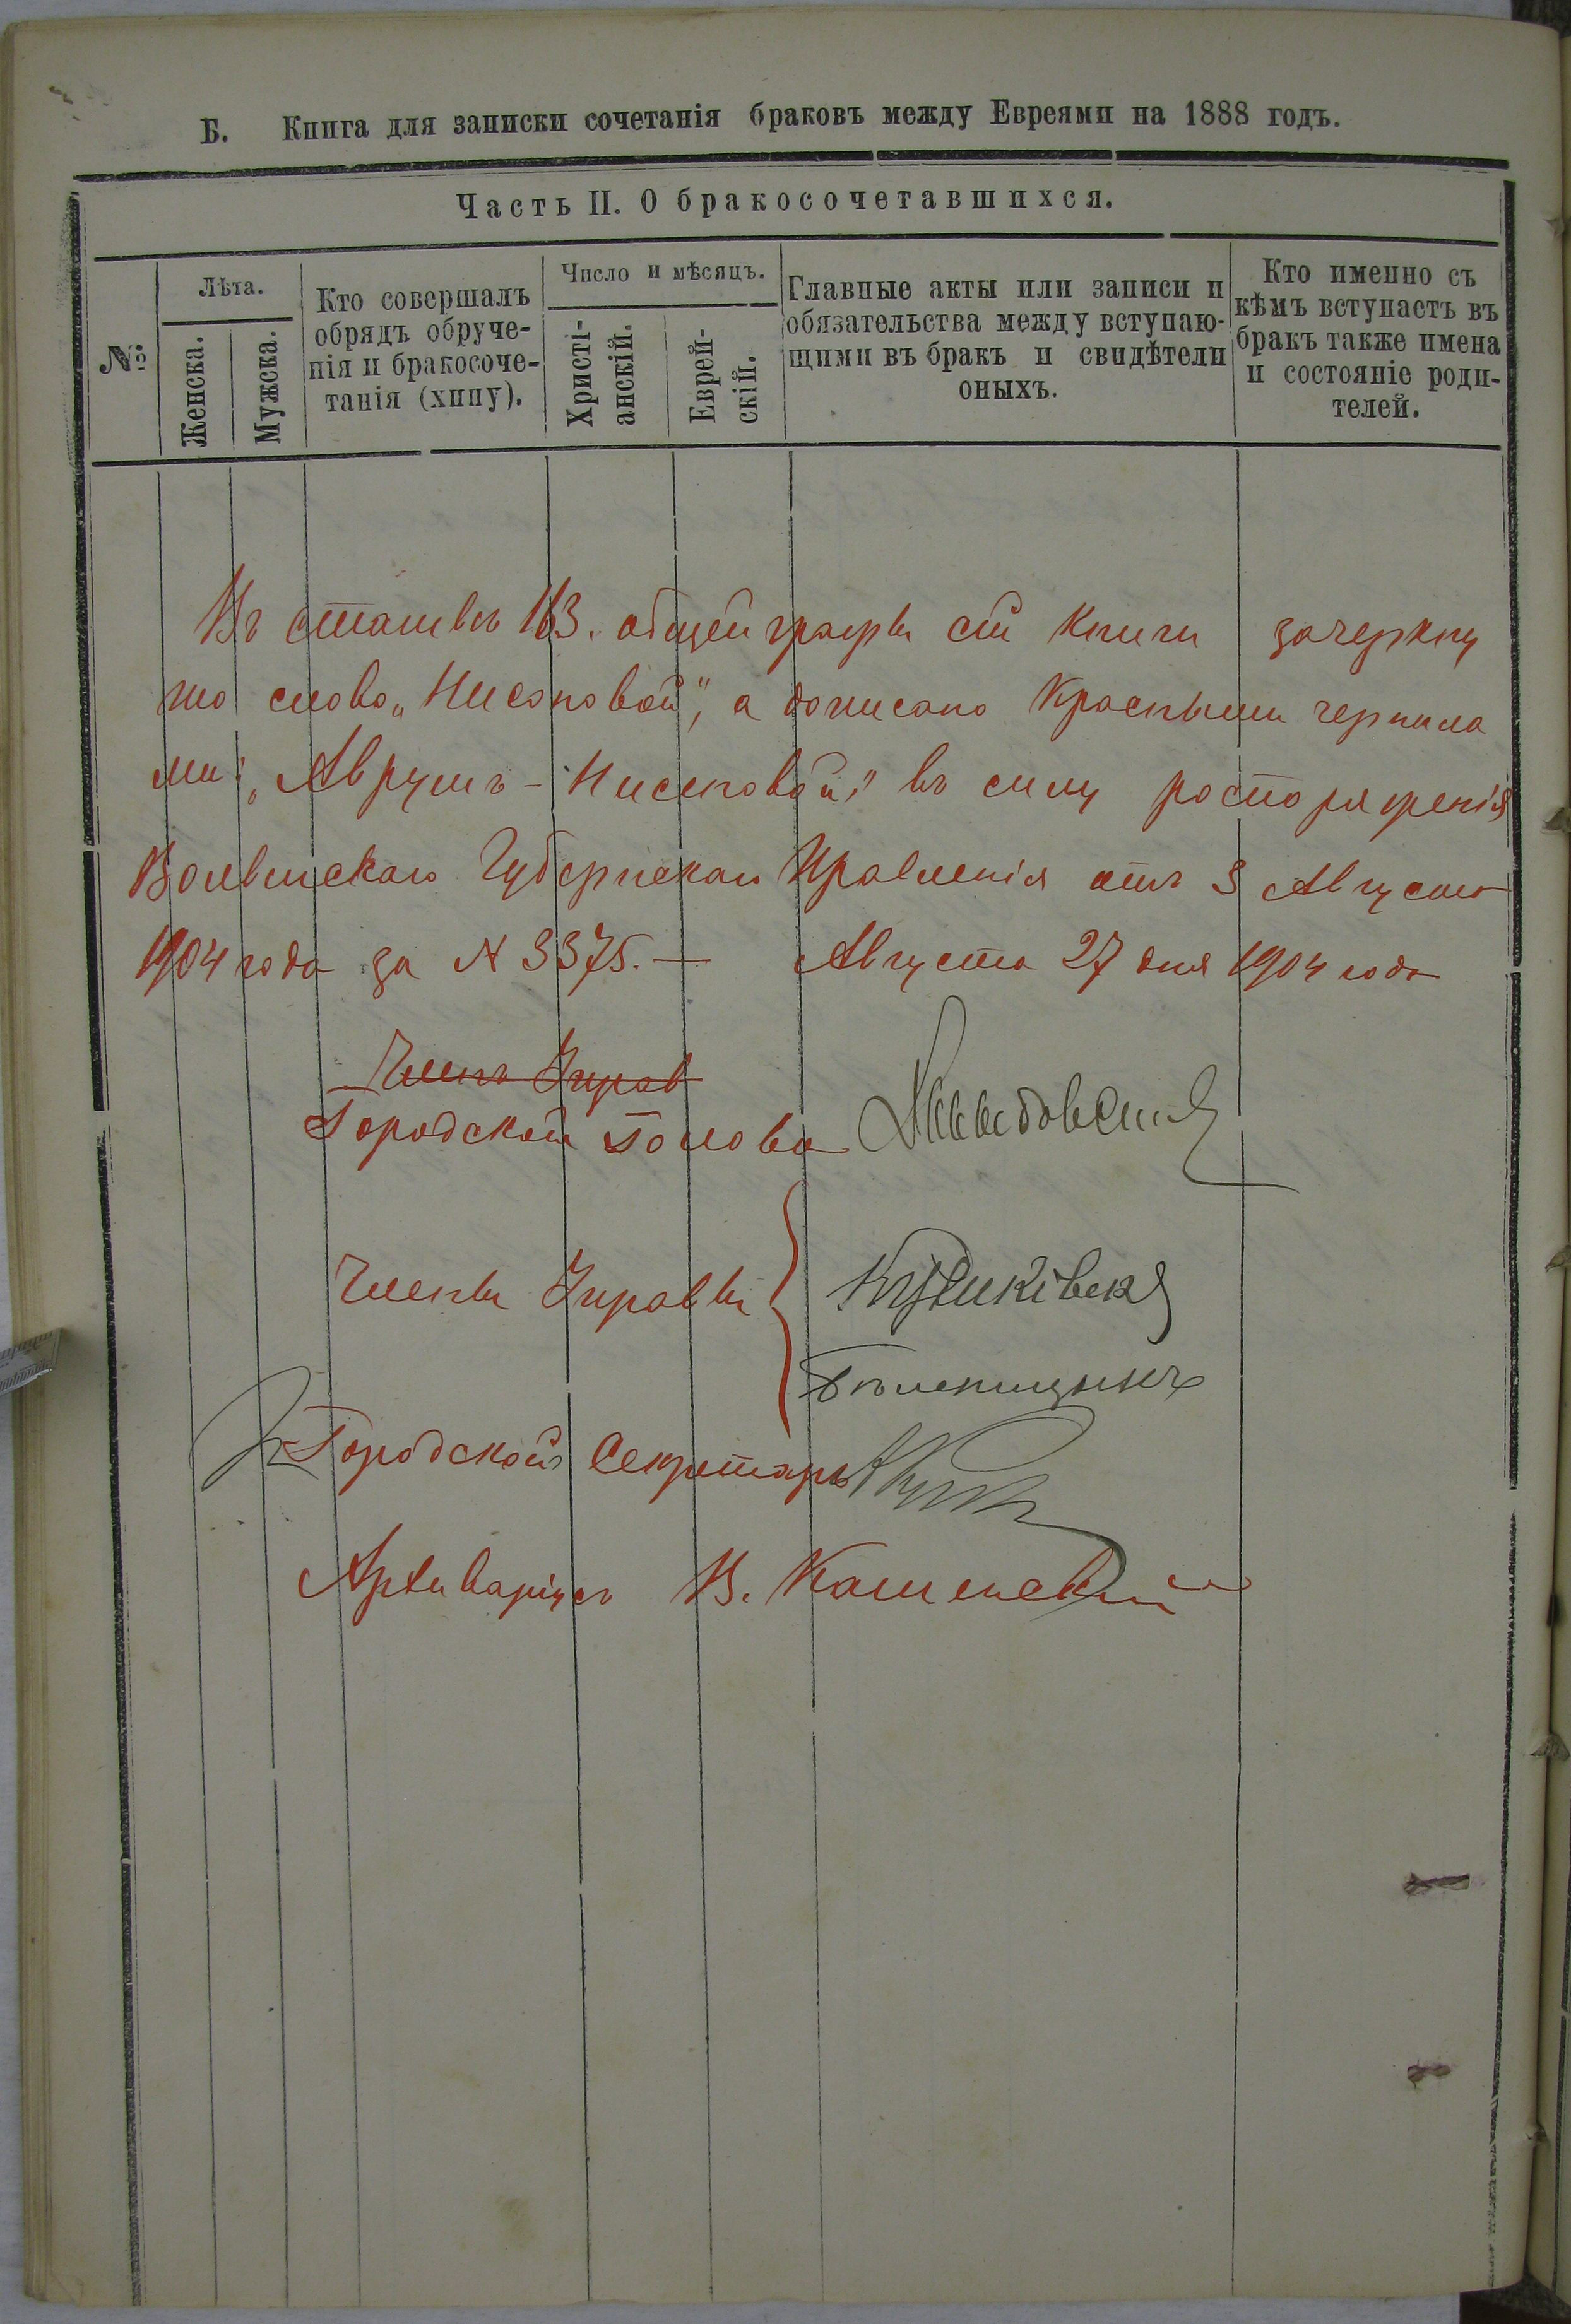 Б. Книга для записки сочетанія браковъ между Евреями на 1888 годъ.
Часть II. О бракосочетавшихся.
№
Лѣта.
Женска.
Мужска.
Кто совершалъ
обрядъ обруче-
нія и бракосоче-
танія (хипу).
Число и мѣсяцъ.
Христі-
анскій.
Еврей-
скій.
Главные акты или записи и
обязательства между вступаю-
щими въ бракъ и свидѣтели
оныхъ.
Кто именно съ
кѣмъ вступаетъ въ
бракъ также имена
и состояніе роди-
телей.
Въ статьѣ 163. общей графы сій Книги зачеркну
то слово „Нисоновой", а дописано Красными чернила
ми: „Аврумъ-Нисеновой," въ силу распоряженія
Волынскаго Губернскаго Правленія отъ 3 Августа
1904 года за № 3375.— Августа 27 дня 1904 года
Членъ Управ
Городской Голова
Члены Управы
Городской Секретарь
Архиваріусъ В.